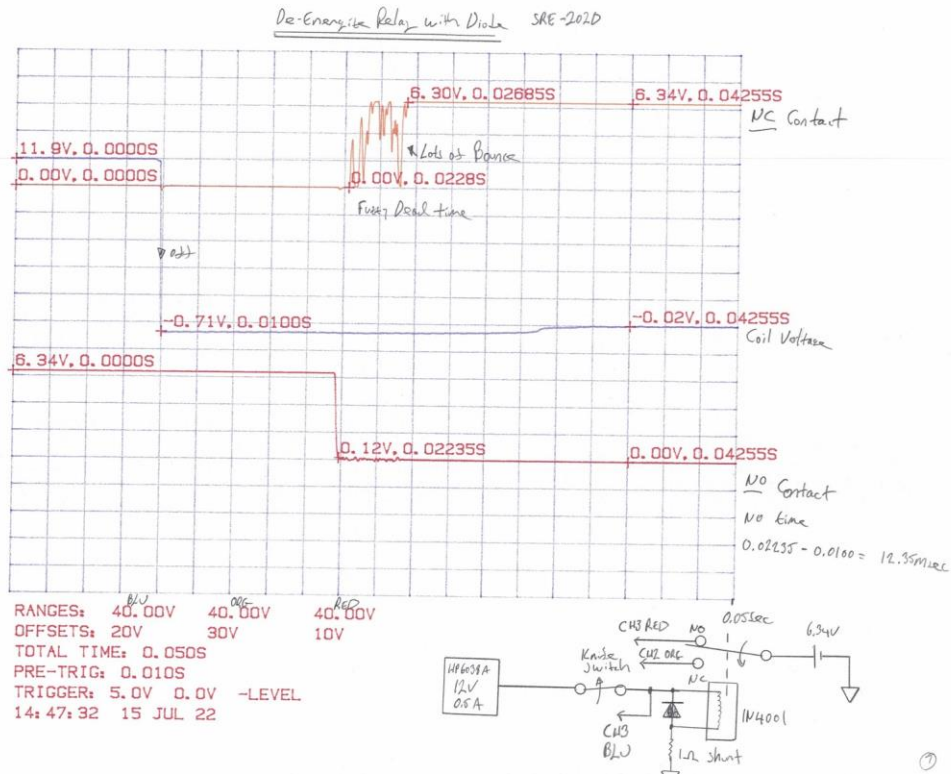 De-Energize Relay with Diode SRE-202D
6.30V, 0.02685S
6.34V, 0.04255S
NC Contact
11.9V, 0.0000S
Lots of Bounce
0.00V, 0.0000S
0.00V, 0.0228S
Fuzzy Dead time
off
-0.71V, 0.0100S
-0.02V, 0.04255S
Coil Voltage
6.34V, 0.0000S
0.12V, 0.02235S
0.00V, 0.04255S
NO Contact
NO time
0.02235 - 0.0100 = 12.35msec
BLU ORG RED
RANGES: 40.00V 40.00V 40.00V
OFFSETS: 20V 30V 10V
TOTAL TIME: 0.050S
PRE-TRIG: 0.010S
TRIGGER: 5.0V 0.0V -LEVEL
14:47:32 15 JUL 22
CH3 RED NO
6.34V
Knife Switch
CH2 ORG
NC
HP6038A
12V
0.5A
1N4001
CH3
BLU
1Ω shunt